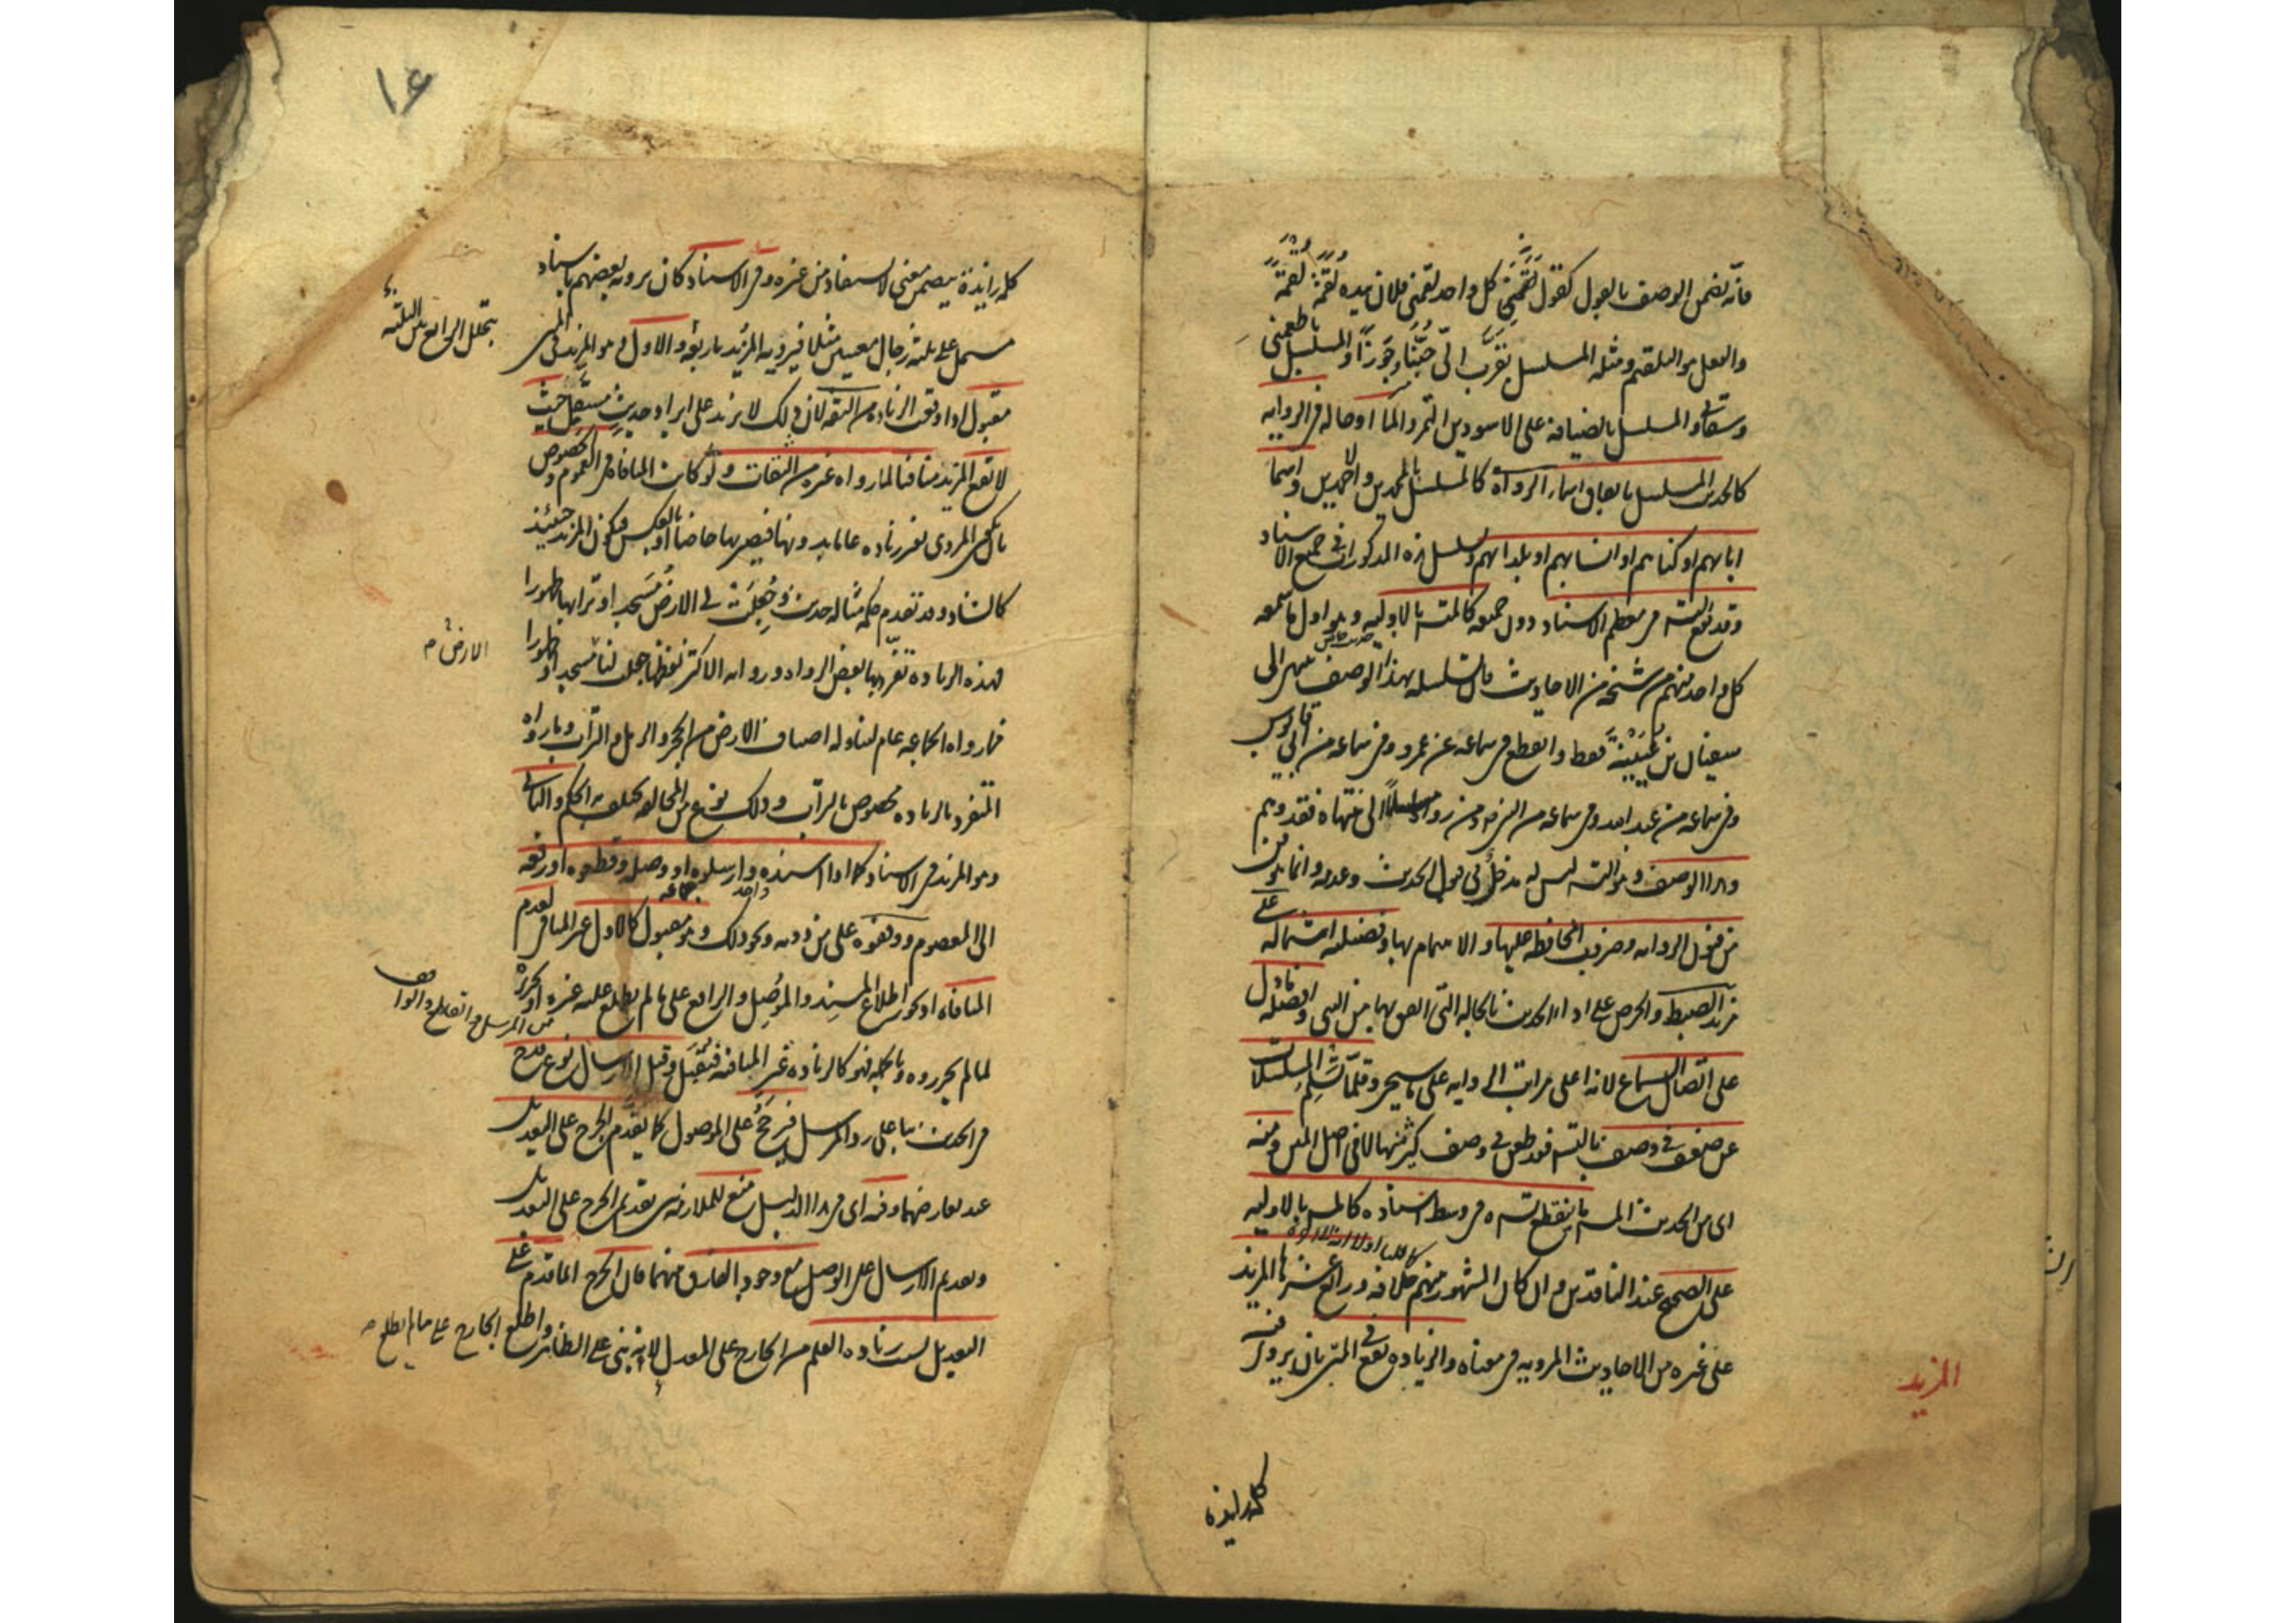 فانه تضمن الوصف بالقول كقول لقمني كل واحد لقمني فلان بيده لقمة لقمة
والفعل هو التلقيم ومثله المسلسل بقرب الى خبزا وجوزا والمسلسل باطعمني
وسقاني والمسلسل بالضيافة على الاسودين التمر والماء او حاله في الرواية
كالحديث المسلسل باتفاق اسماء الرواة كالمسلسل بالمحمدين والاحمدين واسماء
ابائهم او كناهم او انسابهم او بلدانهم وتسلسل هذه المذكورات في جميع الاسناد
وقد تقع التسلسل في معظم الاسناد دون جميعه كالمسلسل بالاولية وهو اول ما سمعه
كل واحد منهم من شيخه من الاحاديث فان تسلسله بهذا الوصف ينتهي الى
سفيان بن عيينة فقط وانقطع في سماعه عن عمرو وفي سماعه من ابي قابوس
وفي سماعه من عبد الله وفي سماعه من النبي ص ومن رواه مسلسلا الى منتهاه فقد وهم
وهذا الوصف وهو التسلسل ليس له مدخل في قبول الحديث وعدمه وانما هو فن
من فنون الرواية وضروب المحافظة عليها والاهتمام بها وفضيلته اشتماله على
مزيد الضبط والحرص على اداء الحديث بالحالة التي اتفق بها من النبي ص وافضله ما دل
على اتصال السماع لانه اعلى مراتب الرواية على ما سيجيء وقلما تسلم المسلسلات
عن ضعف في وصف بالتسلسل فقد طعن في وصف كثير منها لا في اصل المتن ومنه
اى من الحديث المسلسل ما ينقطع تسلسله في وسط اسناده كالمسلسل بالاولية
كما قلنا اولا
على الصحيح عند الناقدين وان كان المشهور منهم خلافه ورابع عشرها المزيد
على غيره من الاحاديث المروية في معناه والزيادة تقع في المتن بان يروى فيه
المزيد
كلمة زايدة
۱۶
كلمة زايدة يتضمن معنى لا يستفاد من غيره وفي الاسناد كان يرويه بعضهم باسناد
مشتمل على ثلثة رجال معينين مثلا فيرويه المزيد باربعة والاول وهو المزيد في المتن
يتخلل الرابع بين الثلثة
مقبول اذا وقعت الزيادة من الثقة لان ذلك لا يزيد على ايراد حديث مستقل حيث
لا يقع المزيد منافيا لما رواه غيره من الثقات ولو كانت المنافاة في العموم والخصوص
بان يكون المروي بغير زيادة عاما بدونها فيصير بها خاصا او بالعكس فيكون المزيد حينئذ
كالشاذ وقد تقدم حكمه مثاله حديث وجعلت لي الارض مسجدا وترابها طهورا
فهذه الزيادة تفرد بها بعض الرواة ورواية الاكثر لفظها جعلت لنا مسجدا وطهورا
الارض
فما رواه الجماعة عام لتناوله اصناف الارض من الحجر والرمل والتراب وما رواه
المتفرد بالزيادة مخصوص بالتراب وذلك نوع من المخالفة يختلف به الحكم والثاني
وهو المزيد في الاسناد كما اذا اسنده وارسلوه او وصله وقطعوه او رفعه
واحد جماعة
الى المعصوم ووقفوه على من دونه ونحو ذلك وهو مقبول كالاول غير المنافي لعدم
المنافاة اذ يجوز اطلاع المسند والموصل والرافع على ما لم يطلع عليه غيره او تحرز
من المرسل والقاطع والواقف
لما لم يحرروه وبالجملة فهو كالزيادة غير المنافية فيقبل وقيل الارسال نوع قدح
في الحديث بناء على رد المرسل فيرجح على الموصول كما يقدم الجرح على التعديل
عند تعارضهما وفيه اى في هذا الدليل منع للملازمة بين تقديم الجرح على التعديل
وتقديم الارسال على الوصل مع وجود الفارق بينهما فان الجرح انما قدم على
التعديل لسبب زيادة العلم من الجارح على المعدل لانه بنى على الظاهر واطلع الجارح على ما لم يطلع